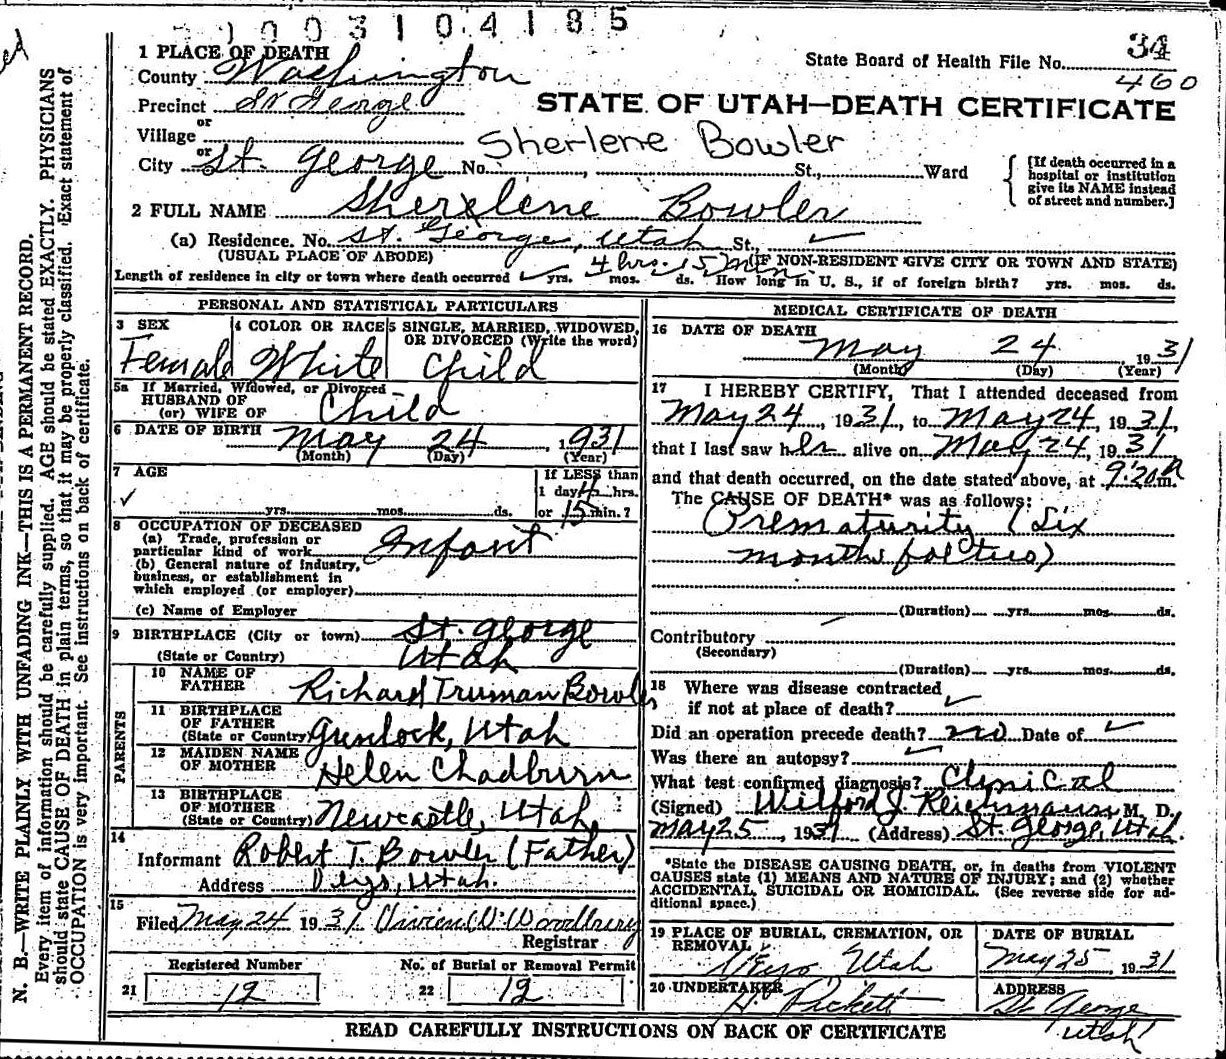 1003104185
34
State Board of Health File No.
460
1 PLACE OF DEATH
County Washington
Precinct St George
STATE OF UTAH—DEATH CERTIFICATE
or
Village
Sherlene Bowler
or
City St. George No. St., Ward
{ [If death occurred in a
hospital or institution
give its NAME instead
of street and number.]
2 FULL NAME Sherlene Bowler
(a) Residence. No. St. George, Utah St., ✓
(USUAL PLACE OF ABODE) (IF NON-RESIDENT GIVE CITY OR TOWN AND STATE)
4 hrs. 15 Min
Length of residence in city or town where death occurred ✓ yrs. mos. ds. How long in U. S., if of foreign birth? yrs. mos. ds.
PERSONAL AND STATISTICAL PARTICULARS
3 SEX
Female
4 COLOR OR RACE
White
5 SINGLE, MARRIED, WIDOWED,
OR DIVORCED (Write the word)
Child
5a If Married, Widowed, or Divorced
HUSBAND OF
(or) WIFE OF Child
6 DATE OF BIRTH May 24 1931
(Month) (Day) (Year)
7 AGE
✓ yrs. mos. ds.
If LESS than
1 day 4 hrs.
or 15 min.?
8 OCCUPATION OF DECEASED
(a) Trade, profession or
particular kind of work Infant
(b) General nature of industry,
business, or establishment in
which employed (or employer)
(c) Name of Employer
9 BIRTHPLACE (City or town) St. George
(State or Country) Utah
PARENTS
10 NAME OF
FATHER Richard Truman Bowler
11 BIRTHPLACE
OF FATHER
(State or Country) Gunlock, Utah
12 MAIDEN NAME
OF MOTHER Helen Chadburn
13 BIRTHPLACE
OF MOTHER
(State or Country) Newcastle, Utah
14
Informant Robert T. Bowler (Father)
Address Veyo, Utah.
15
Filed May 24 1931 Vivien W. Woodbury
Registrar
Registered Number
21 12
No. of Burial or Removal Permit
22 12
MEDICAL CERTIFICATE OF DEATH
16 DATE OF DEATH
May 24 1931
(Month) (Day) (Year)
17 I HEREBY CERTIFY, That I attended deceased from
May 24, 1931, to May 24, 1931,
that I last saw her alive on May 24, 1931
and that death occurred, on the date stated above, at 9:20 A m.
The CAUSE OF DEATH* was as follows:
Prematurity (Six
months foetus)
(Duration) yrs. mos. ds.
Contributory
(Secondary)
(Duration) yrs. mos. ds.
18 Where was disease contracted
if not at place of death? ✓
Did an operation precede death? no Date of ✓
Was there an autopsy? ✓
What test confirmed diagnosis? Clinical
(Signed) Wilford J. Reichmann, M. D.
May 25, 1931 (Address) St. George, Utah.
*State the DISEASE CAUSING DEATH, or, in deaths from VIOLENT
CAUSES state (1) MEANS AND NATURE OF INJURY; and (2) whether
ACCIDENTAL, SUICIDAL OR HOMICIDAL. (See reverse side for ad-
ditional space.)
19 PLACE OF BURIAL, CREMATION, OR
REMOVAL
Veyo Utah
DATE OF BURIAL
May 25, 1931
20 UNDERTAKER
H. Pickett
ADDRESS
St George
Utah
READ CAREFULLY INSTRUCTIONS ON BACK OF CERTIFICATE
N. B.—WRITE PLAINLY WITH UNFADING INK—THIS IS A PERMANENT RECORD.
Every item of information should be carefully supplied. AGE should be stated EXACTLY. PHYSICIANS
should state CAUSE OF DEATH in plain terms, so that it may be properly classified. Exact statement of
OCCUPATION is very important. See instructions on back of certificate.